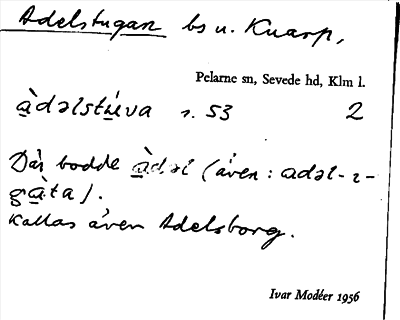 Adelstugan bs u. Knarp,
Pelarne sn, Sevede hd, Klm l.
àdəlstu̇va s. 53 2
Där bodde àdəl (även: adəl-ı-
gàta).
Kallas även Adelsborg.
Ivar Modéer 1956